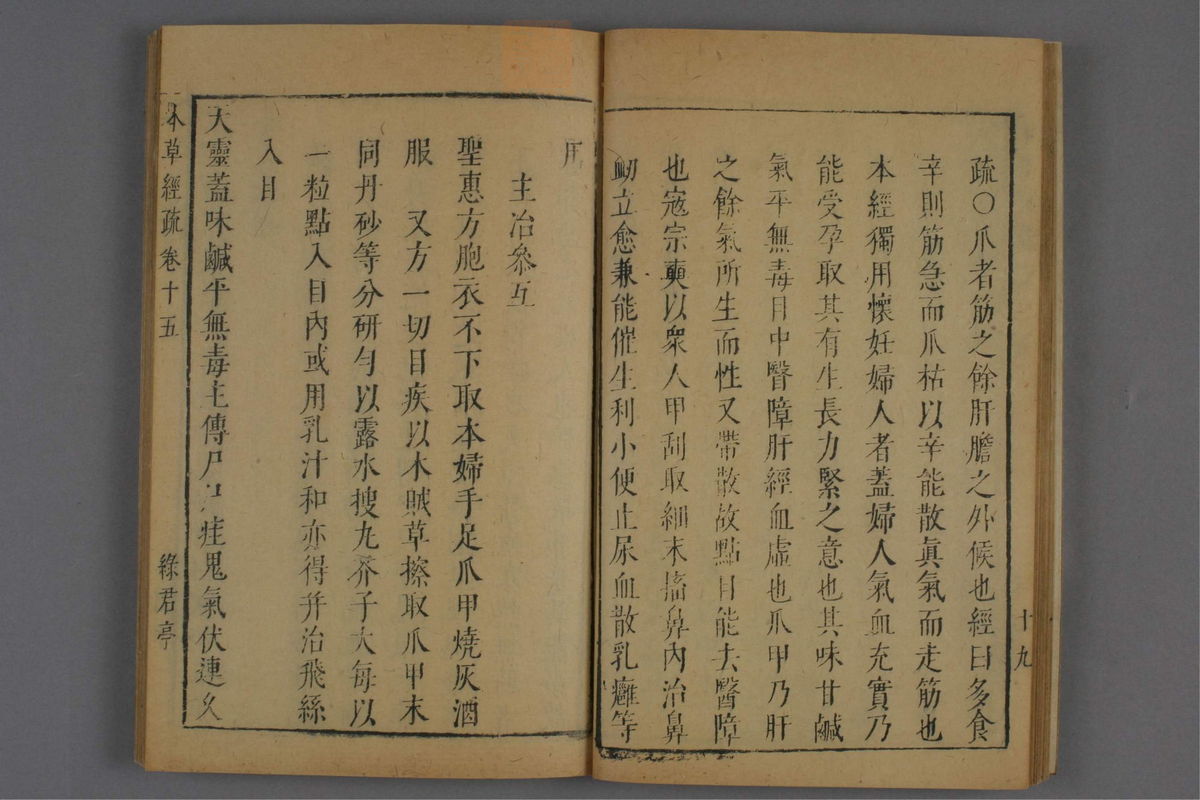 十九
疏○爪者筋之餘肝膽之外候也經曰多食
辛則筋急而爪枯以辛能散眞氣而走筋也
本經獨用懷妊婦人者蓋婦人氣血充實乃
能受孕取其有生長力緊之意也其味甘鹹
氣平無毒目中瞖障肝經血虛也爪甲乃肝
之餘氣所生而性又帶散故點目能去瞖障
也寇宗奭以衆人甲刮取細末搐鼻內治鼻
衂立愈兼能催生利小便止尿血散乳癰等
用
主治參互
聖惠方胞衣不下取本婦手足爪甲燒灰酒
服　又方一切目疾以木賊草擦取爪甲末
同丹砂等分研勻以露水搜丸芥子大每以
一粒點入目內或用乳汁和亦得幷治飛絲
入目
天靈蓋味鹹平無毒主傳尸疰鬼氣伏連久
本草經疏 卷十五 綠君亭